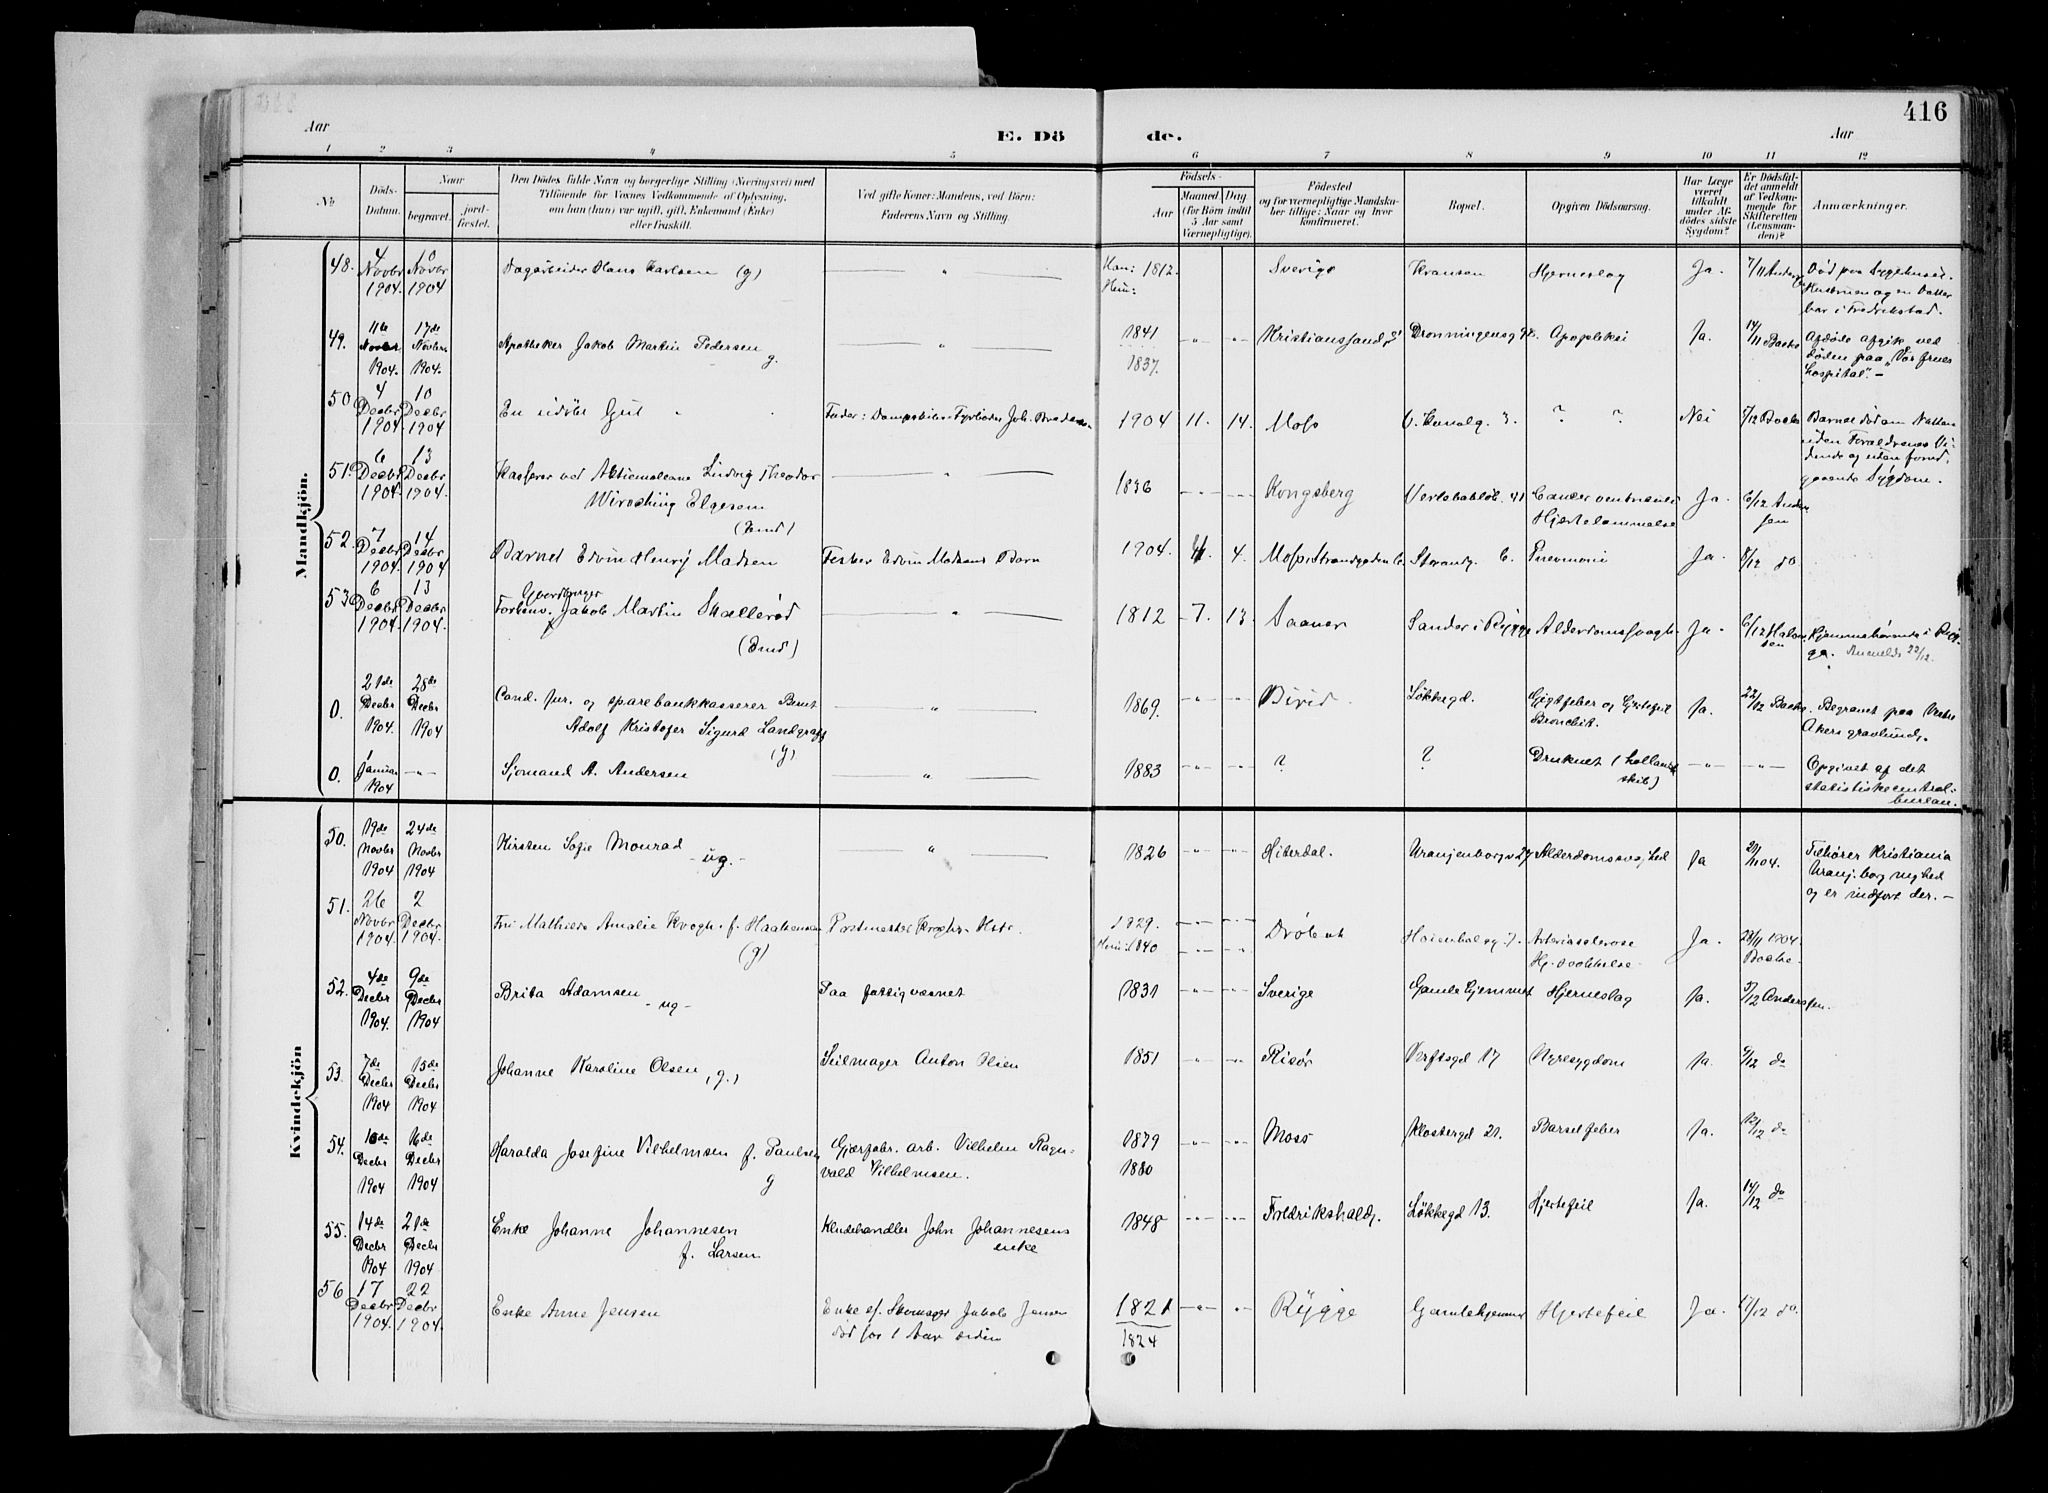 416
Aar
E. Dö
de.
Aar
1 2 3 4 5 6 7 8 9 10 11 12
No
Döds-Datum.
Naar
begravet.
jord-fæstet.
Den Dödes fulde Navn og borgerlige Stilling (Næringsvei) med
Tilföiende for Voxnes Vedkommende af Oplysning,
om han (hun) var ugift, gift, Enkemand (Enke)
eller fraskilt.
Ved gifte Koner: Mandens, ved Börn:
Faderens Navn og Stilling.
Födsels-
Aar
Maaned. Dag.
(for Börn indtil
5 Aar samt
Værnepligtige).
Födested
og for værnepligtige Mandska-
ber tillige: Naar og hvor
konfirmeret.
Bopæl.
Opgiven Dödsaarsag.
Har Læge
været
tilkaldt
under Af-
dödes sidste
Sygdom?
Er Dödsfal-
det anmeldt
af Vedkom-
mende for
Skifteretten
(Lensman-
den)?
Anmærkninger.
Mandkjön.
48. 4 Novbr 1904 Novbr 1904 Dagarbeider Hans Karlsen (g) 1812. Sverige Kransen Hjerneslag Ja. 7/11 Død paa Sygehuset.
Hustruen og en Datter
bor i Fredrikstad.
49. 11te Novbr 1904. 17de Novbr 1904. Apotheker Jakob Martin Pedersen g. 1841 1837. Kristianssand Dronningensg Apopleksi Ja. 14/11 Afdøde afgik ved
døden paa "Vor frues
hospital".-
50. 4 Decbr 1904. 10 Decbr 1904 En udøbt Gut Fader: 1904 11. 14. Moss ? ? Nei 7/12 Barnet død om Natten
uden Forældrenes Vi-
dende og uden foreud-
gaaende Sygdom.
51. 6 Decbr 1904. 13 Decbr 1904. Kasserer ved Aktiemøllerne Ludvig Theodor
Elgesem
(Emd) 1836 Kongsberg Cancer ventriculi
Hjertelammelse Ja. 6/12 Andersen
52. 7 Decbr 1904. 14 Decbr 1904 Barnet Edvin Henry Madsen Fisker Edvin Madsens Barn 1904. 4. Moss. Strandgaden 6. Strandg. 6. Pneumoni Ja. 8/12 do
53. 6 Decbr 1904. 13 Decbr 1904. Gaardbruger
Forhenv. Jakob Martin Skallerød
(Emd) 1812 7. 13. Saaner Sander i Rygge Alderdomssvagh. Ja. 6/12 Hjemmehørende i Ryg-
ge. Anmeldt 22/12.
0. 21de Decbr 1904. 28de Decbr 1904 Cand. jur. og sparebankkasserer Bernt
Adolf Kristofer Sigurd Landgraff
(g) 1869. Birid. Løkkegd. Gigtfeber og Hjertefeil
Bronchit. Ja. 22/12 Begravet paa Vestre
Akers gravlund.
0. 1 Januar 1904 Sjømand A. Andersen 1883 ? ? Druknet (hollandsk
skib) Opgivet af det
statistiske central-
bureau.
Kvindekjön
50. 19de Novbr 1904 24de Novbr 1904 Kirsten Sofie Monrad - ug.- 1826 Hiterdal. Uranienborgv 27 Alderdomssvaghed Ja 04. Tilhører Kristiania
Uranienborg mghed
og er indført der.-
51. 26 Novbr 1904. 2 Decbr 1904. Fru Mathilde Amalie Krogh f. Haakensen
(g) Postmester Kroghs Hstr. 1829. 1840 Drøbak Arteriosclerose Ja. 28/11 1904.
52. 4de Decbr 1904. 9de Decbr 1904 Brita Adamsen - ug - Paa fattigvæsnet 1831 Sverige Gamle Hjemmet Hjerneslag Ja. 5/12 Andersen.
53. 7de Decbr 1904 15de Decbr 1904 Johanne Karoline Olsen (g.) Seilmager Anton Olsen 1851 Risør Verftsgd 17 Nyresygdom Ja. 9/12 do
54. 10de Decbr 1904 16de Decbr 1904 Haralda Josefine Vilhelmsen f. Paulsen
g Gjærfabr. arb. Vilhelm Ragn-
vald Vilhelmsen. 1879 1880 Moss Klostergd 21. Barselfeber Ja. 12/12 do
55. 14de Decbr 1904 21de Decbr 1904 Enke Johanne Johannesen
f. Larsen Kludehandler John Johannesens
enke 1848 Fredrikshald. Løkkegd 13. Hjertefeil Ja. 14/12 do
56 17 Decbr 1904. 22 Decbr 1904. Enke Anne Jensen Enke ef. Skomager Jakob Jensen
død for 1 Aar siden 1821 1824 Rygge Gamlehjemmet Hjertefeil Ja. 17/12 do.